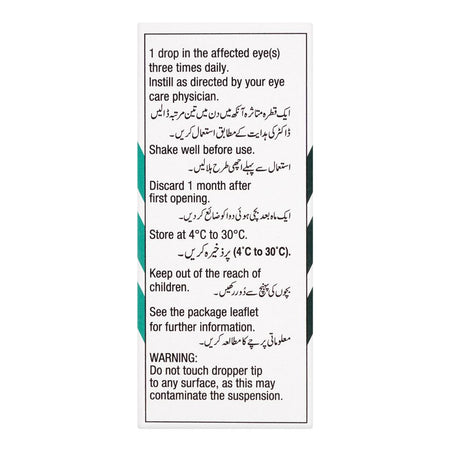 1 drop in the affected eye(s)
three times daily.
Instill as directed by your eye
care physician.
ایک قطرہ متاثرہ آنکھ میں دن میں تین مرتبہ ڈالیں
ڈاکٹر کی ہدایت کے مطابق استعمال کریں۔
Shake well before use.
استعمال سے پہلے اچھی طرح ہلالیں۔
Discard 1 month after
first opening.
ایک ماہ بعد بچی ہوئی دوا کو ضائع کر دیں۔
Store at 4°C to 30°C.
(4°C to 30°C) پر ذخیرہ کریں۔
Keep out of the reach of
children.
بچوں کی پہنچ سے دُور رکھیں۔
See the package leaflet
for further information.
معلوماتی پرچے کا مطالعہ کریں۔
WARNING:
Do not touch dropper tip
to any surface, as this may
contaminate the suspension.